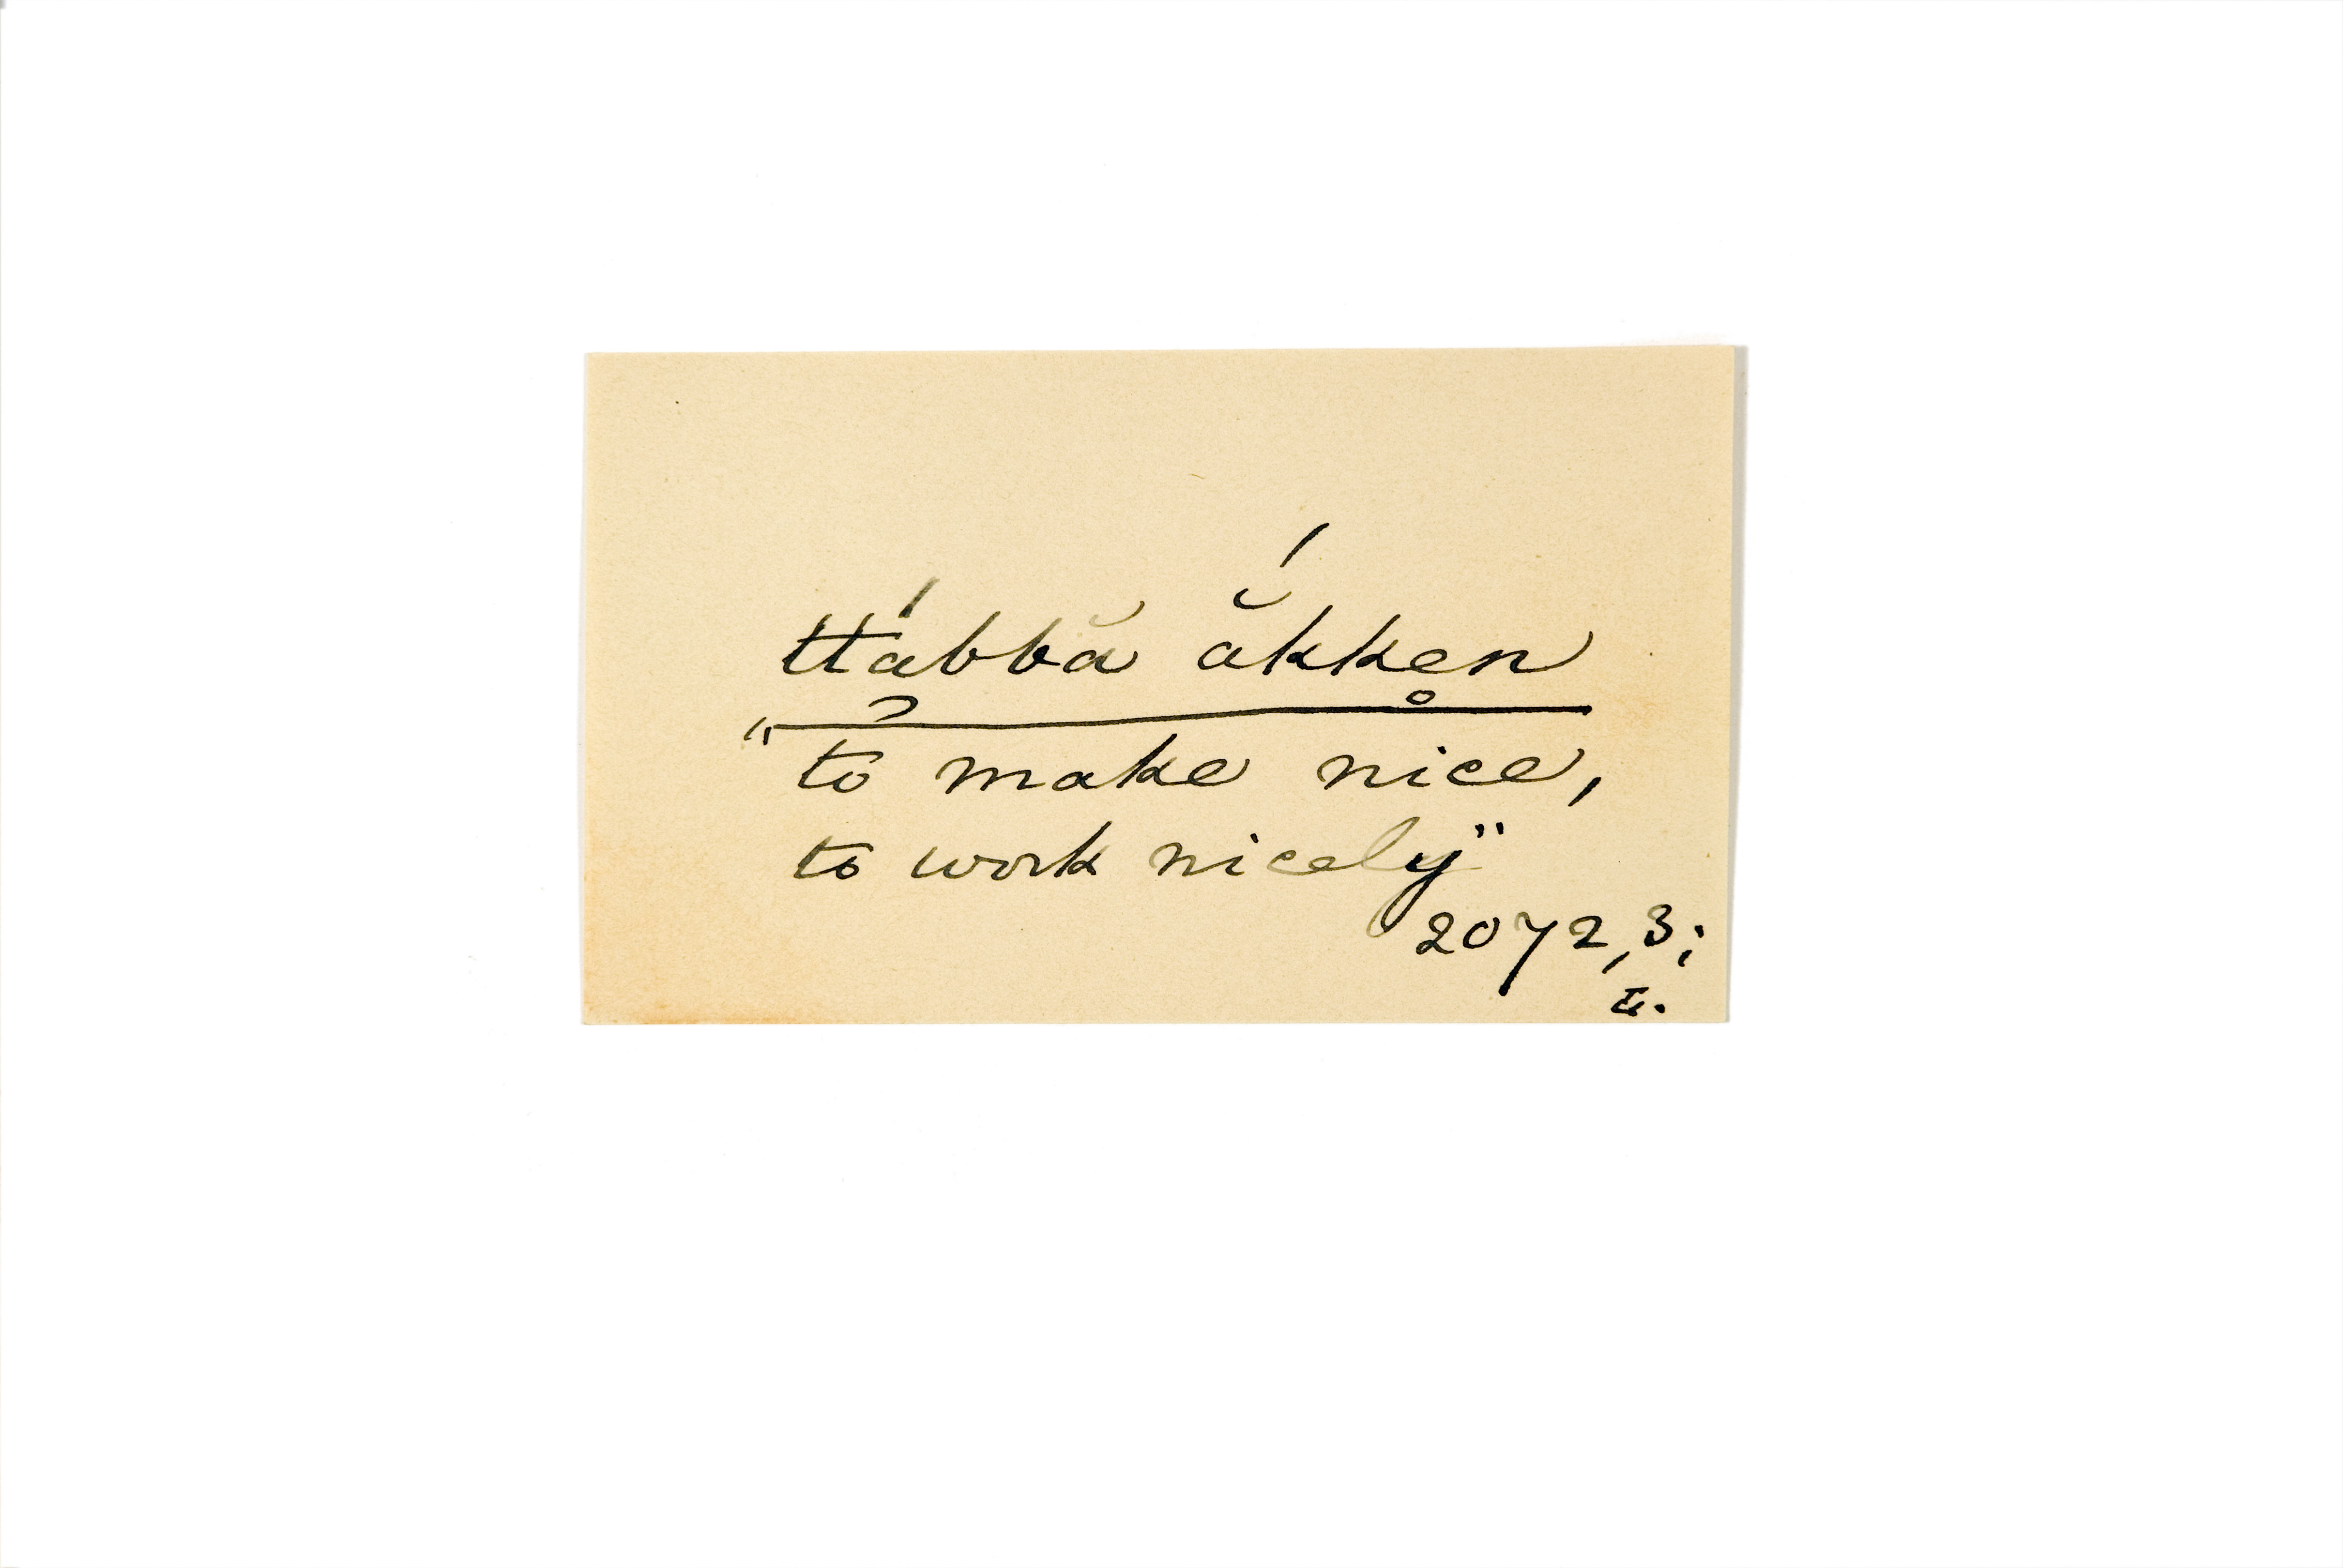 ttá̡bbă ắkke̥n
"to make nice,
to work nicely"
2072,3;